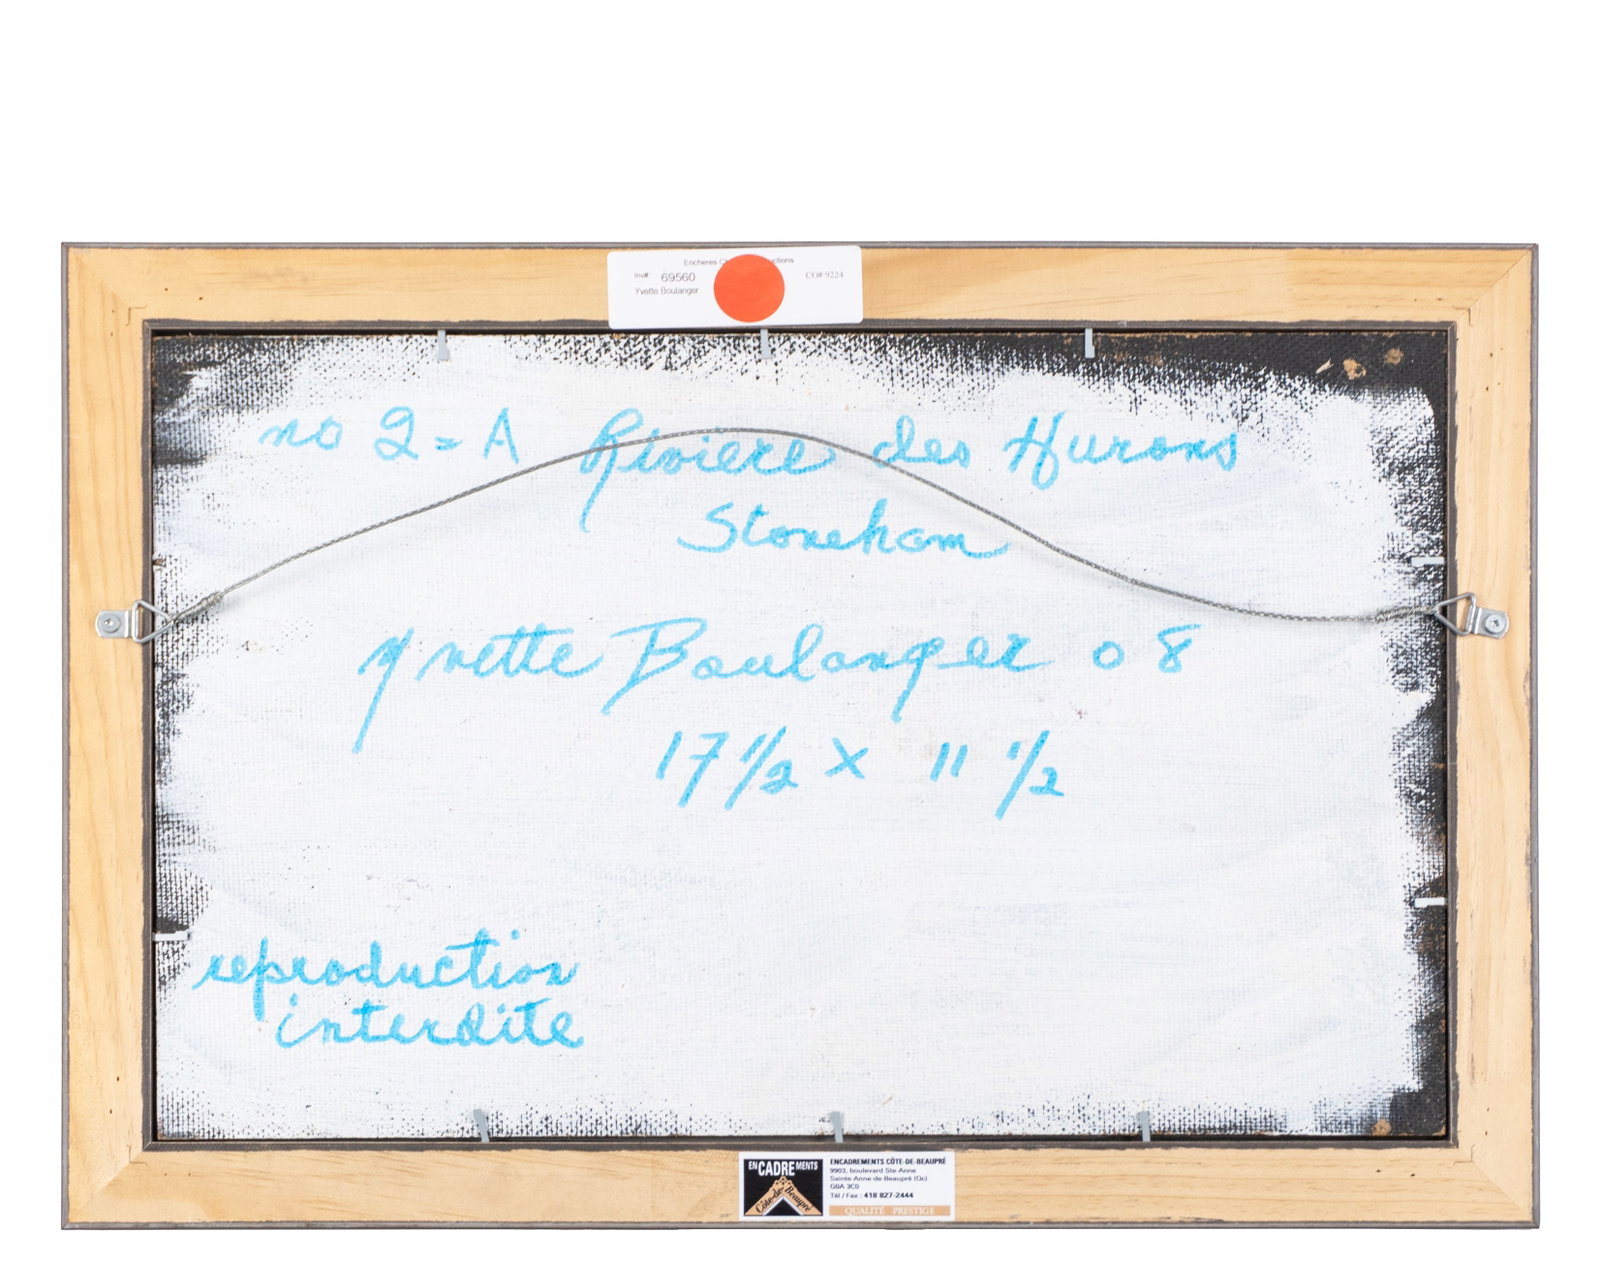 Encheres
Inv#: 69560 CO#:9224
Yvette Boulanger
no 2=A Rivière des Hurons
Stoneham
Yvette Boulanger 08
17 1/2 x 11 1/2
reproduction
interdite
ENCADREMENTS
Côte-de-Beaupré
ENCADREMENTS CÔTE-DE-BEAUPRÉ
9903, boulevard Ste-Anne
Sainte-Anne-de-Beaupré (Qc)
G0A 3C0
Tél / Fax : 418 827-2444
QUALITÉ PRESTIGE